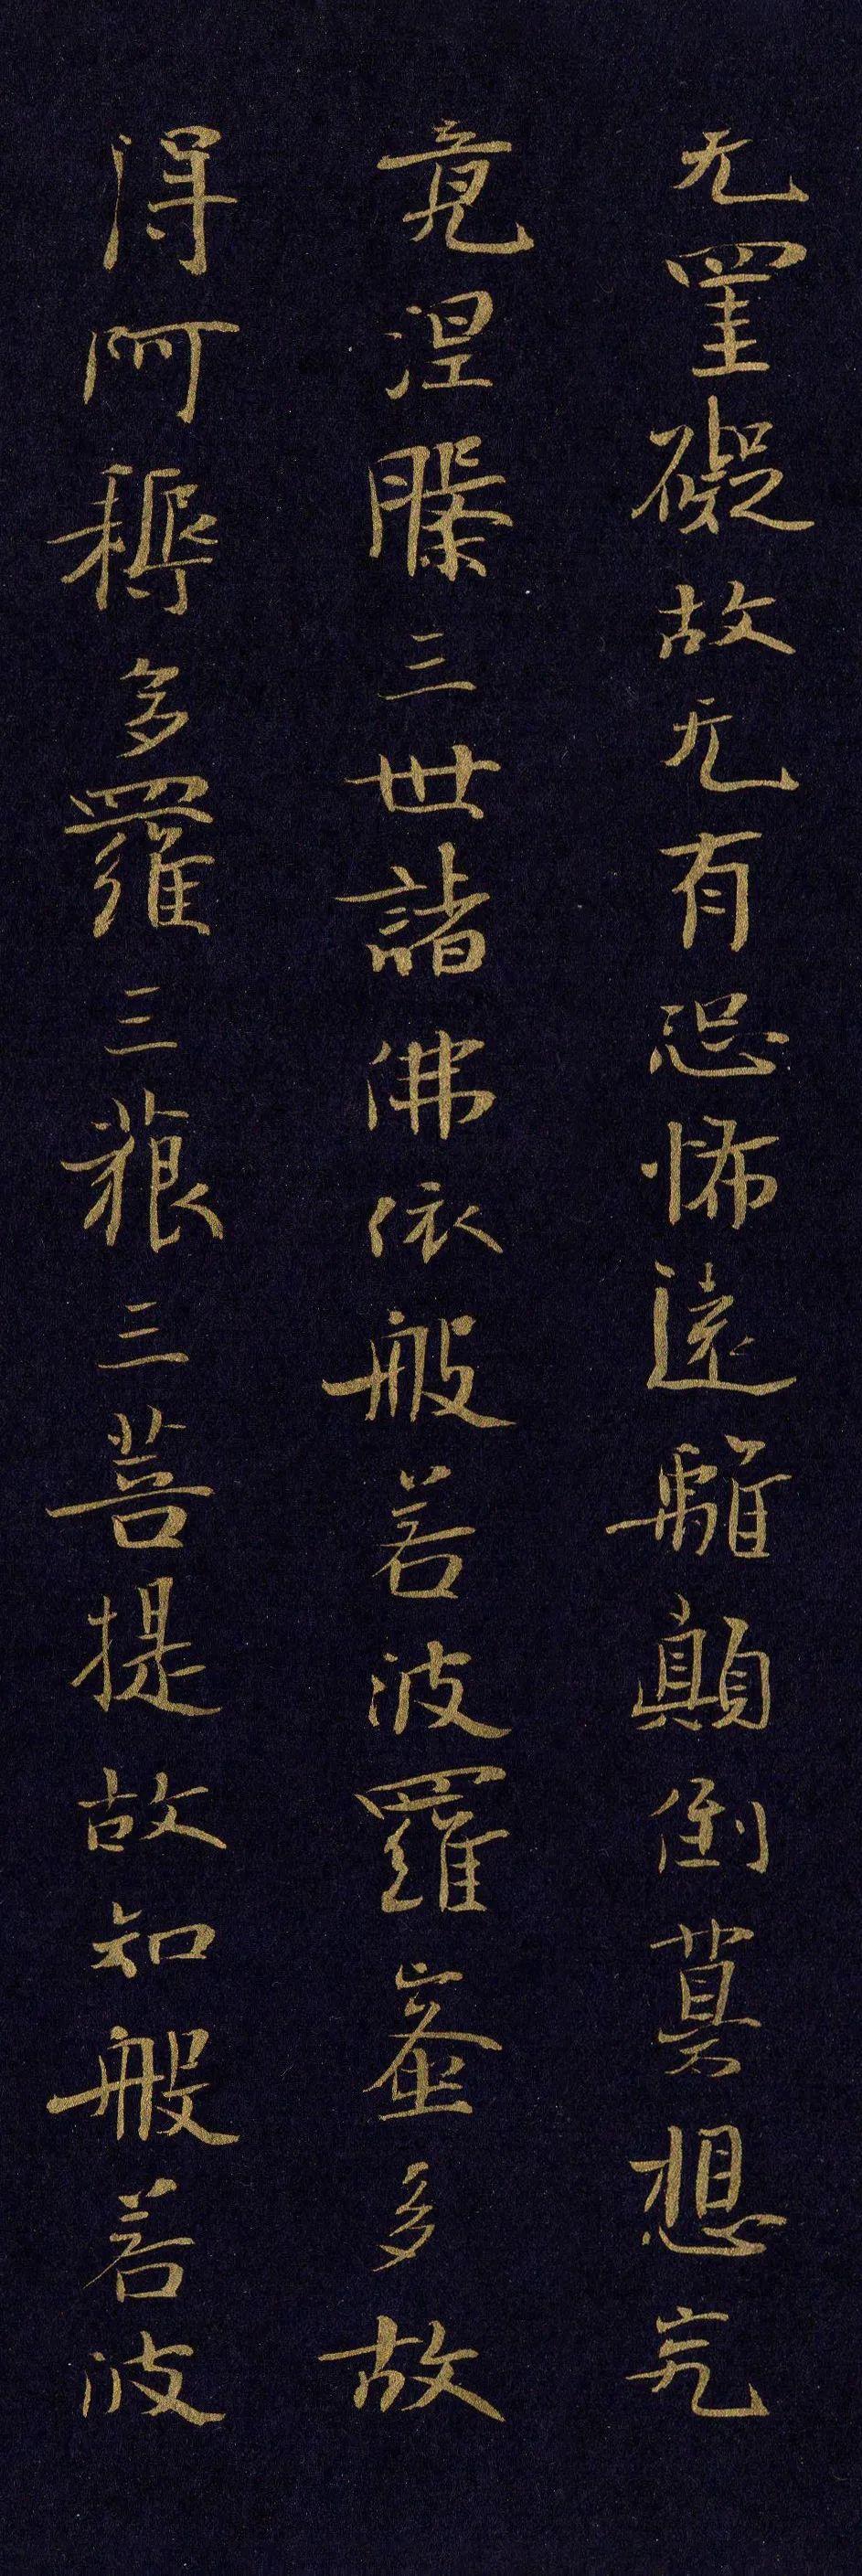 无罣礙故无有恐怖遠離顛倒夢想究
竟涅槃三世諸佛依般若波羅蜜多故
得阿耨多羅三藐三菩提故知般若波